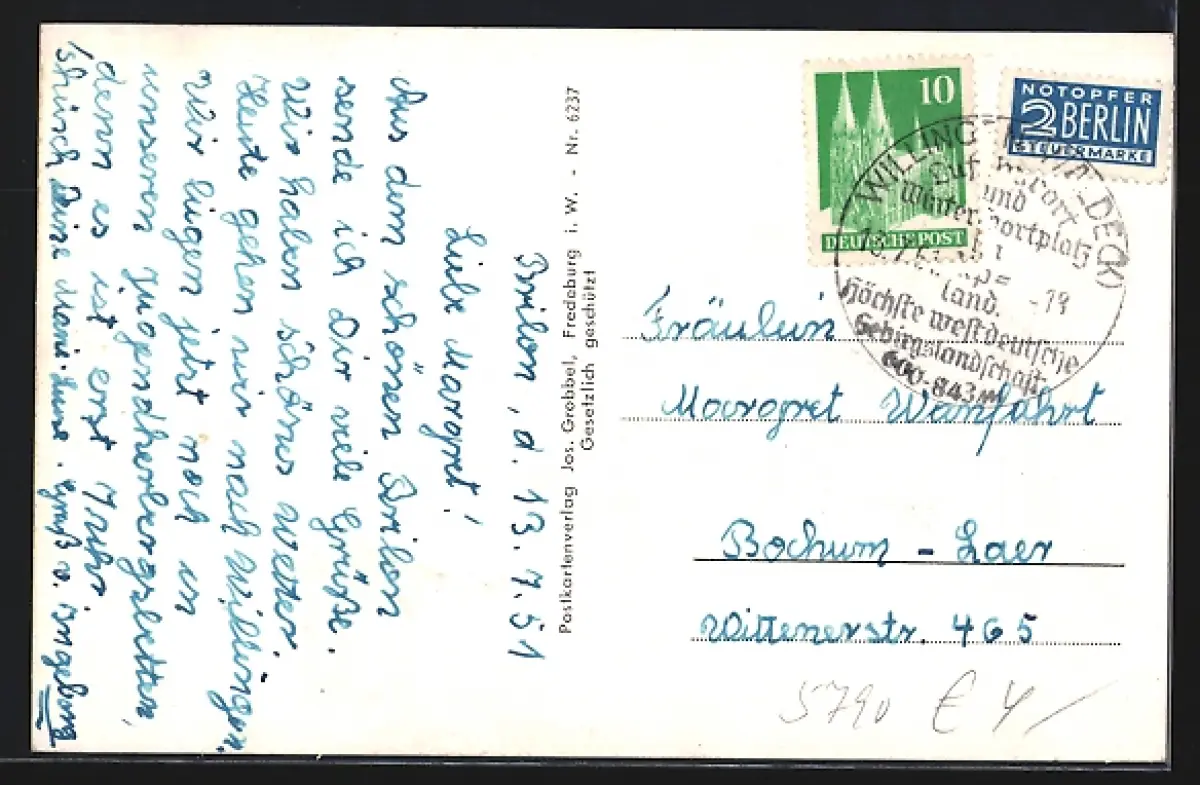 Brilon, d. 13.7.51
Liebe Margret!
Aus dem schönen Brilon
sende ich Dir viele Grüße.
Wir haben schönes Wetter.
Heute gehen wir nach Willingen.
Wir liegen jetzt noch in
unseren Jugendherbergsbetten,
denn es ist erst 7 Uhr.
Es grüßt Deine
Gruß v. Ingeborg
Postkartenverlag Jos. Grobbel, Fredeburg i. W. - Nr. 6237
Gesetzlich geschützt
10
DEUTSCHE POST
NOTOPFER
2 BERLIN
STEUERMARKE
WILLINGEN (WALDECK)
Luftkurort
und
Wintersportplatz
land.
-19
Höchste westdeutsche
Gebirgslandschaft
600-843 m
Fräulein
Margret Wanfahrt
Bochum - Laer
Wittenerstr. 465
5790 E 4/